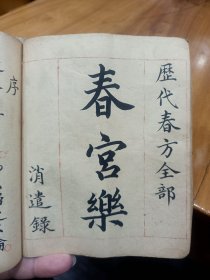 歷代春方全部
春宮樂
消遣錄
序